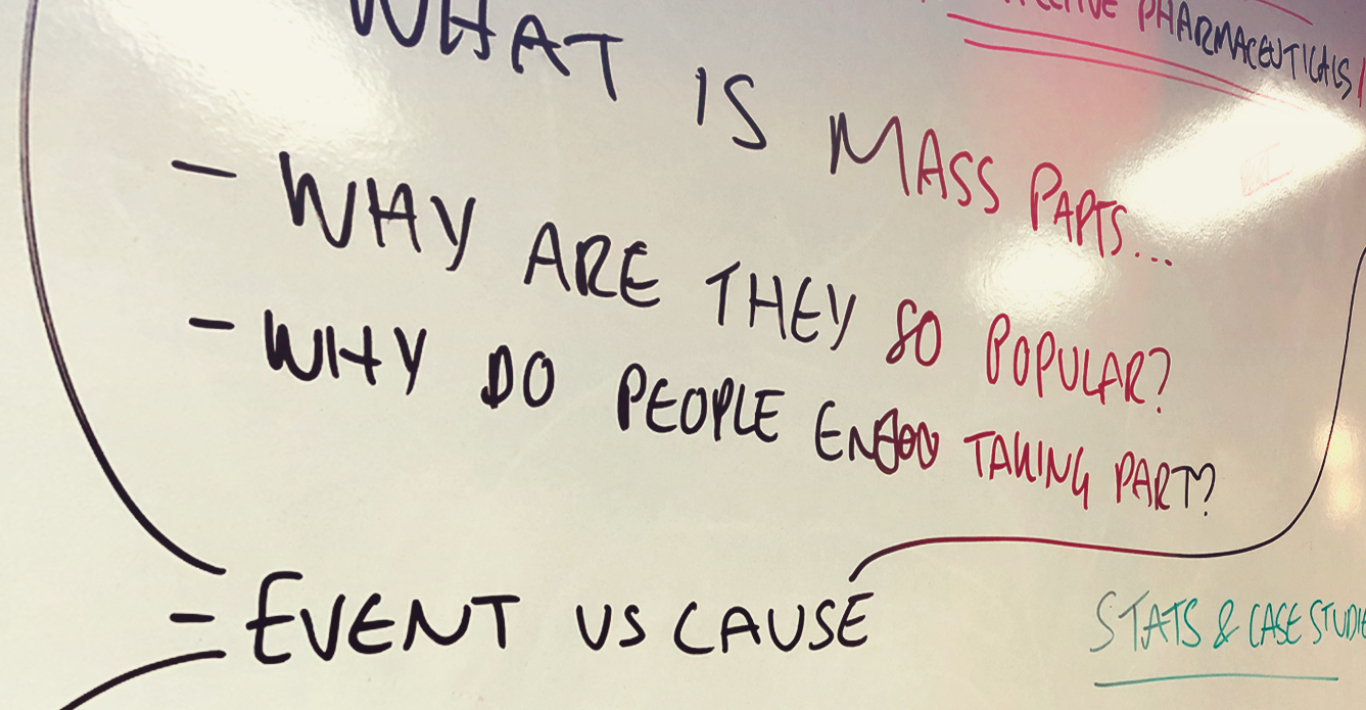 PHARMACEUTICALS
WHAT IS MASS PARTS...
- WHY ARE THEY SO POPULAR?
- WHY DO PEOPLE TAKING PART?
- EVENT VS CAUSE
STATS & CASE